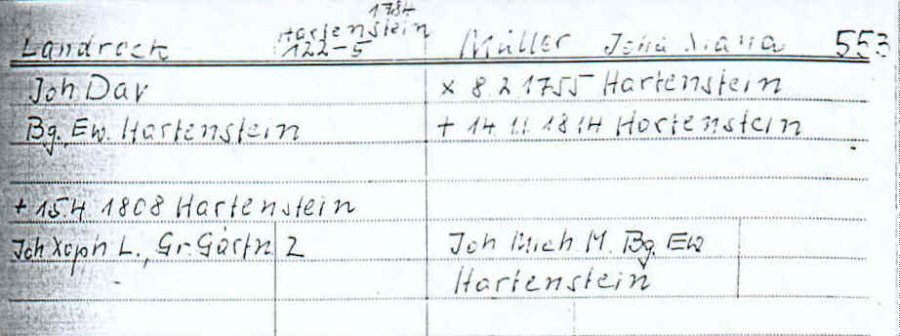 1784
Landrock Hartenstein Müller Joha Xiana 553
122-5
Joh Dav x 8 2 1755 Hartenstein
Bg. Ew. Hartenstein + 14 11 1814 Hartenstein
+ 15 4 1808 Hartenstein
Joh Xoph L., Gr. Gärtn Z Joh Mich M. Bg. Ew
Hartenstein